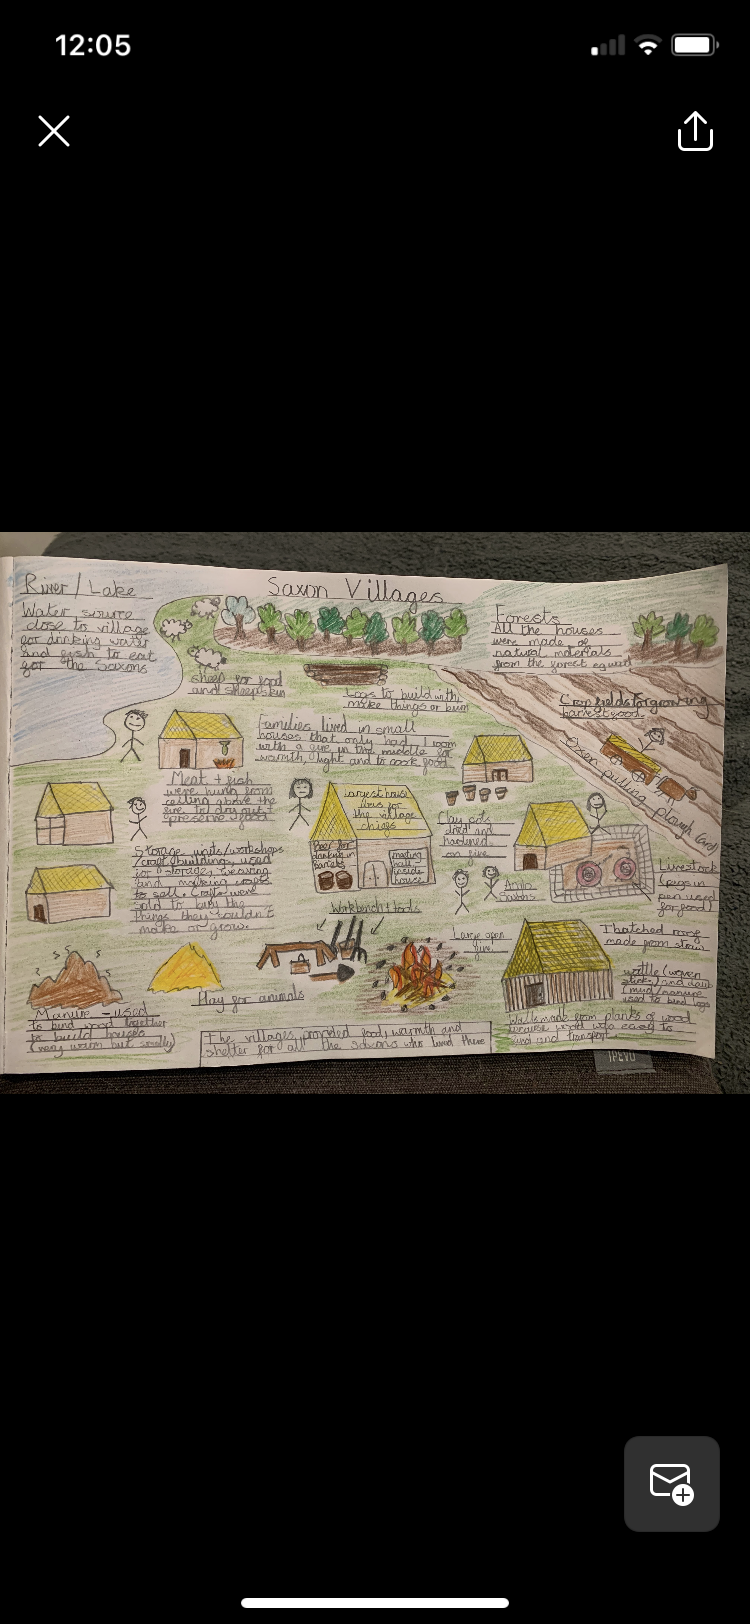 12:05
Saxon Villages
River/Lake
Water source
close to village
for drinking water
and fish to eat
for the Saxons
Forests
All the houses
were made of
natural materials
from the forest
sheep for food
and sheepskin
Logs to build with,
make things or burn
Crop fields for growing
harvest food
Oxen pulling plough (ard)
Families lived in small
houses that only had 1 room
with a fire in the middle for
warmth, light and to cook food.
Meat + fish
were hung from
ceiling above the
fire to dry out +
preserve food
Largest house
was for
the village
chief
Beer for
drinking in
barrels
meeting
hall
inside
house
Clay pots
dried and
hardened
on fire
Anglo
Saxons
Livestock
(pigs in
pen used
for food)
Storage units/workshops
/craft buildings, used
for storage, weaving
and making crops
to sell. Crafts were
sold to buy the
things they couldn't
make or grow.
Workbench + tools
Large open
fire
Thatched roofs
made from straw
wattle (woven
sticks) and daub
(mud/manure
used to bind logs
Hay for animals
Manure - used
to bind wood together
to build houses
(very warm but smelly)
The villages provided food, warmth and
shelter for all the Saxons who lived there
Walls made from planks of wood
because wood was easy to
find and transport.